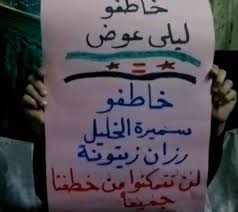 خاطفو
ليلى عوض
=
خاطفو
سميرة الخليل
رزان زيتونة
لن تتمكنوا من خطفنا
جميعاً